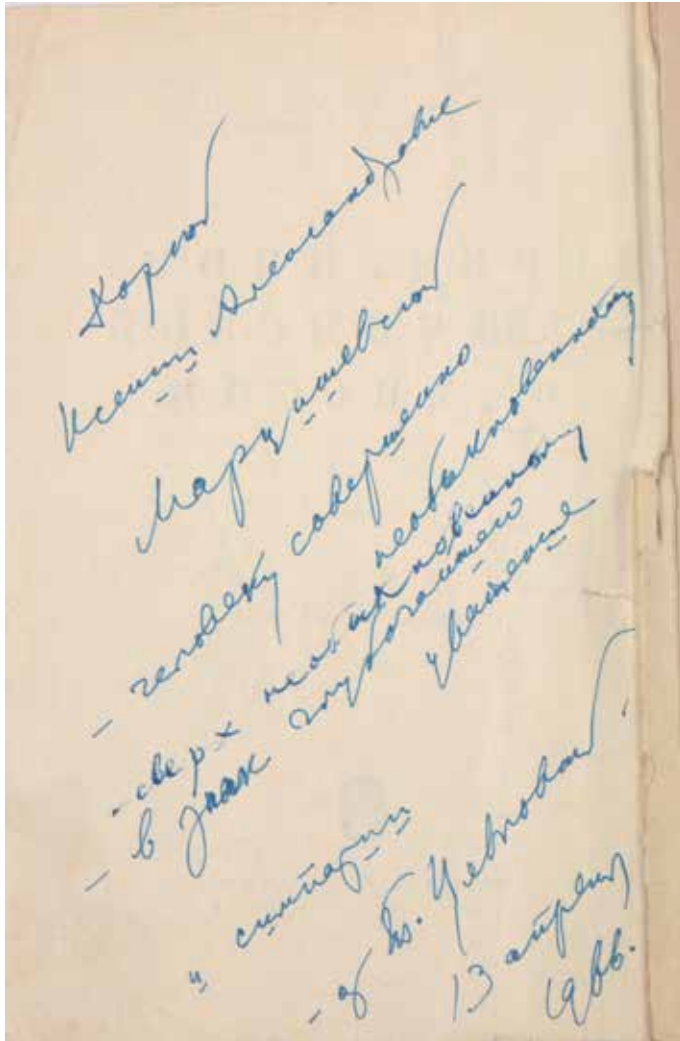 Дорогой
Ксении Александровне
Марцишевской
- человеку совершенно
необыкновенному
- сверх необыкновенному
- в знак глубочайшего
уважения
и симпатии
- от Т. Цявловской.
13 апреля
1966.